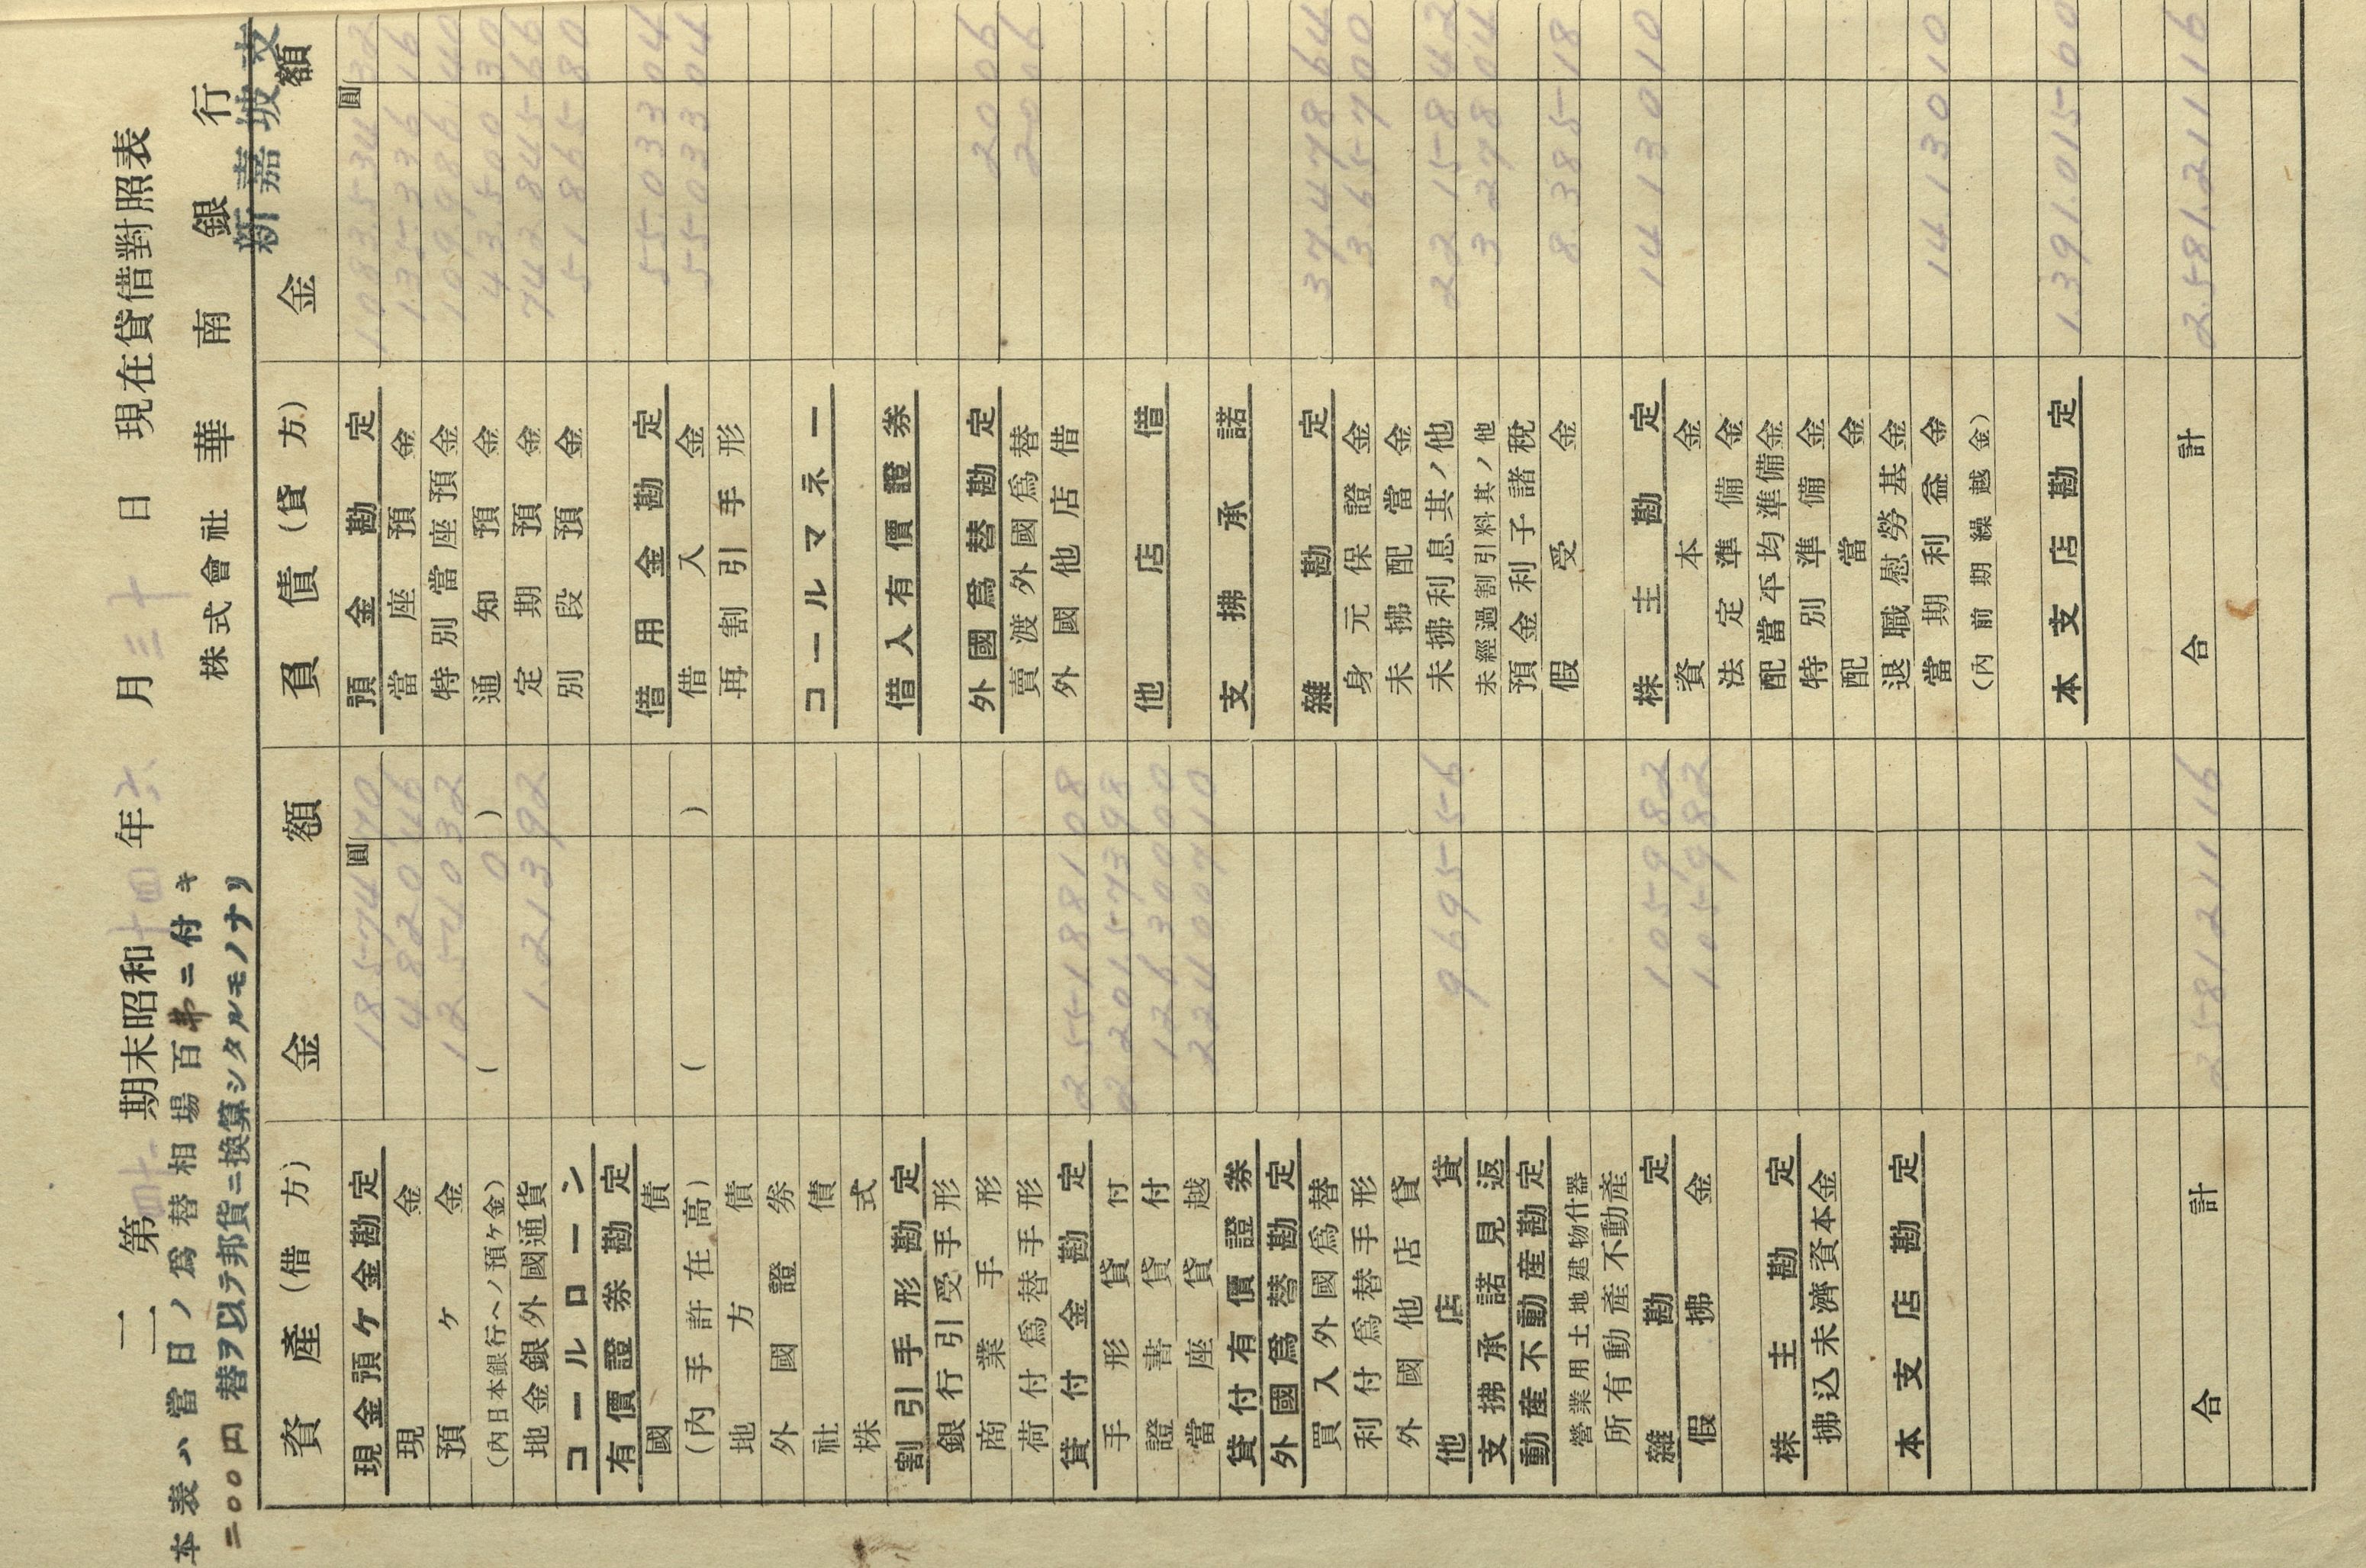 二 第四十一期末昭和十四年六月三十日 現在貸借對照表
本表ハ當日ノ爲替相場百弗ニ付キ
二〇〇円替ヲ以テ邦貨ニ換算シタルモノナリ
株式會社 華南銀行
新嘉坡支
資產(借方) 金額
圓
現金預ケ金勘定 18574 70
現金 4820 46
預ケ金 12540 32
(內日本銀行ヘノ預ケ金) ( 0 )
地金銀外國通貨 1.213 92
コールローン
有價證券勘定
國債
(內手許在高) ( )
地方債
外國證券
社債
株式
割引手形勘定
銀行引受手形
商業手形
荷付爲替手形
貸付金勘定 2551881 08
手形貸付 2201573 98
證書貸付 126300 00
當座貸越 224007 10
貸付有價證券
外國爲替勘定
買入外國爲替
利付爲替手形
外國他店貸
他店貸 9695 56
支拂承諾見返
動產不動產勘定
營業用土地建物什器
所有動產不動產
雜勘定 1059 82
假拂金 1059 82
株主勘定
拂込未濟資本金
本支店勘定
合計 2581211 16
負債(貸方) 金額
圓
預金勘定 1083534 32
當座預金 135336 16
特別當座預金 109986 40
通知預金 43500 30
定期預金 742845 66
別段預金 51865 80
借用金勘定 55033 04
借入金 55033 04
再割引手形
コールマネー
借入有價證券
外國爲替勘定 20 06
賣渡外國爲替 20 06
外國他店借
他店借
支拂承諾
雜勘定 37478 64
身元保證金 3657 00
未拂配當金
未拂利息其ノ他 22158 42
未經過割引料其ノ他 3278 04
預金利子諸稅
假受金 8.385 18
株主勘定 14130 10
資本金
法定準備金
配當平均準備金
特別準備金
配當金
退職慰勞基金
當期利益金 14.130 10
(內前期繰越金)
本支店勘定 1.391.015 00
合計 2.581.211 16